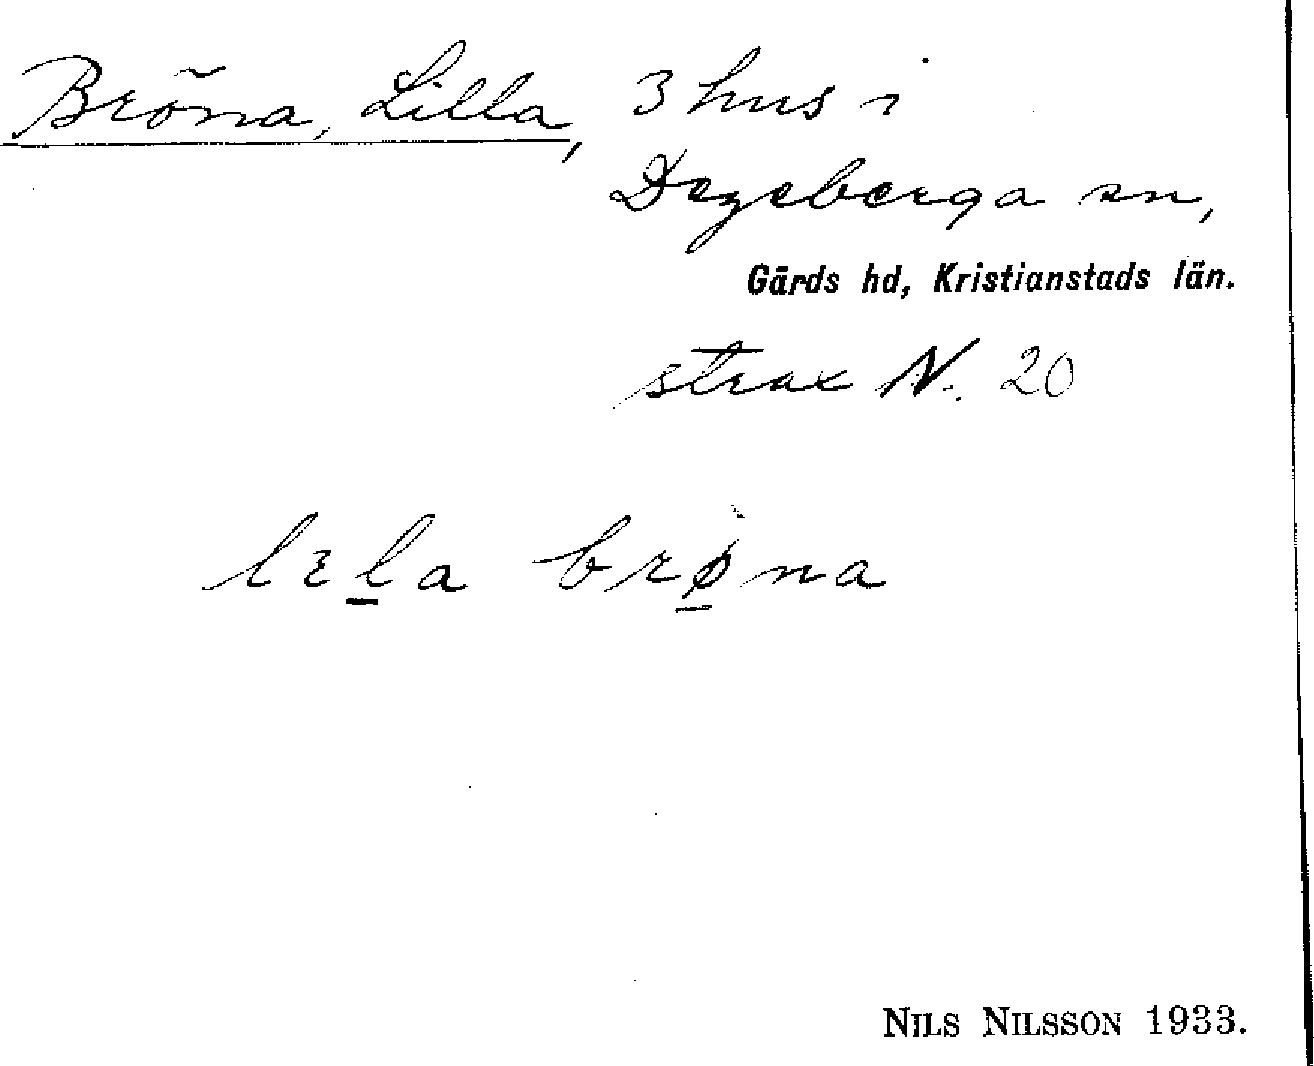 Bröna, Lilla, 3 hus i
Degeberga sn,
Gärds hd, Kristianstads län.
strax N. 20
lɛl̲a brø̲na
NILS NILSSON 1933.